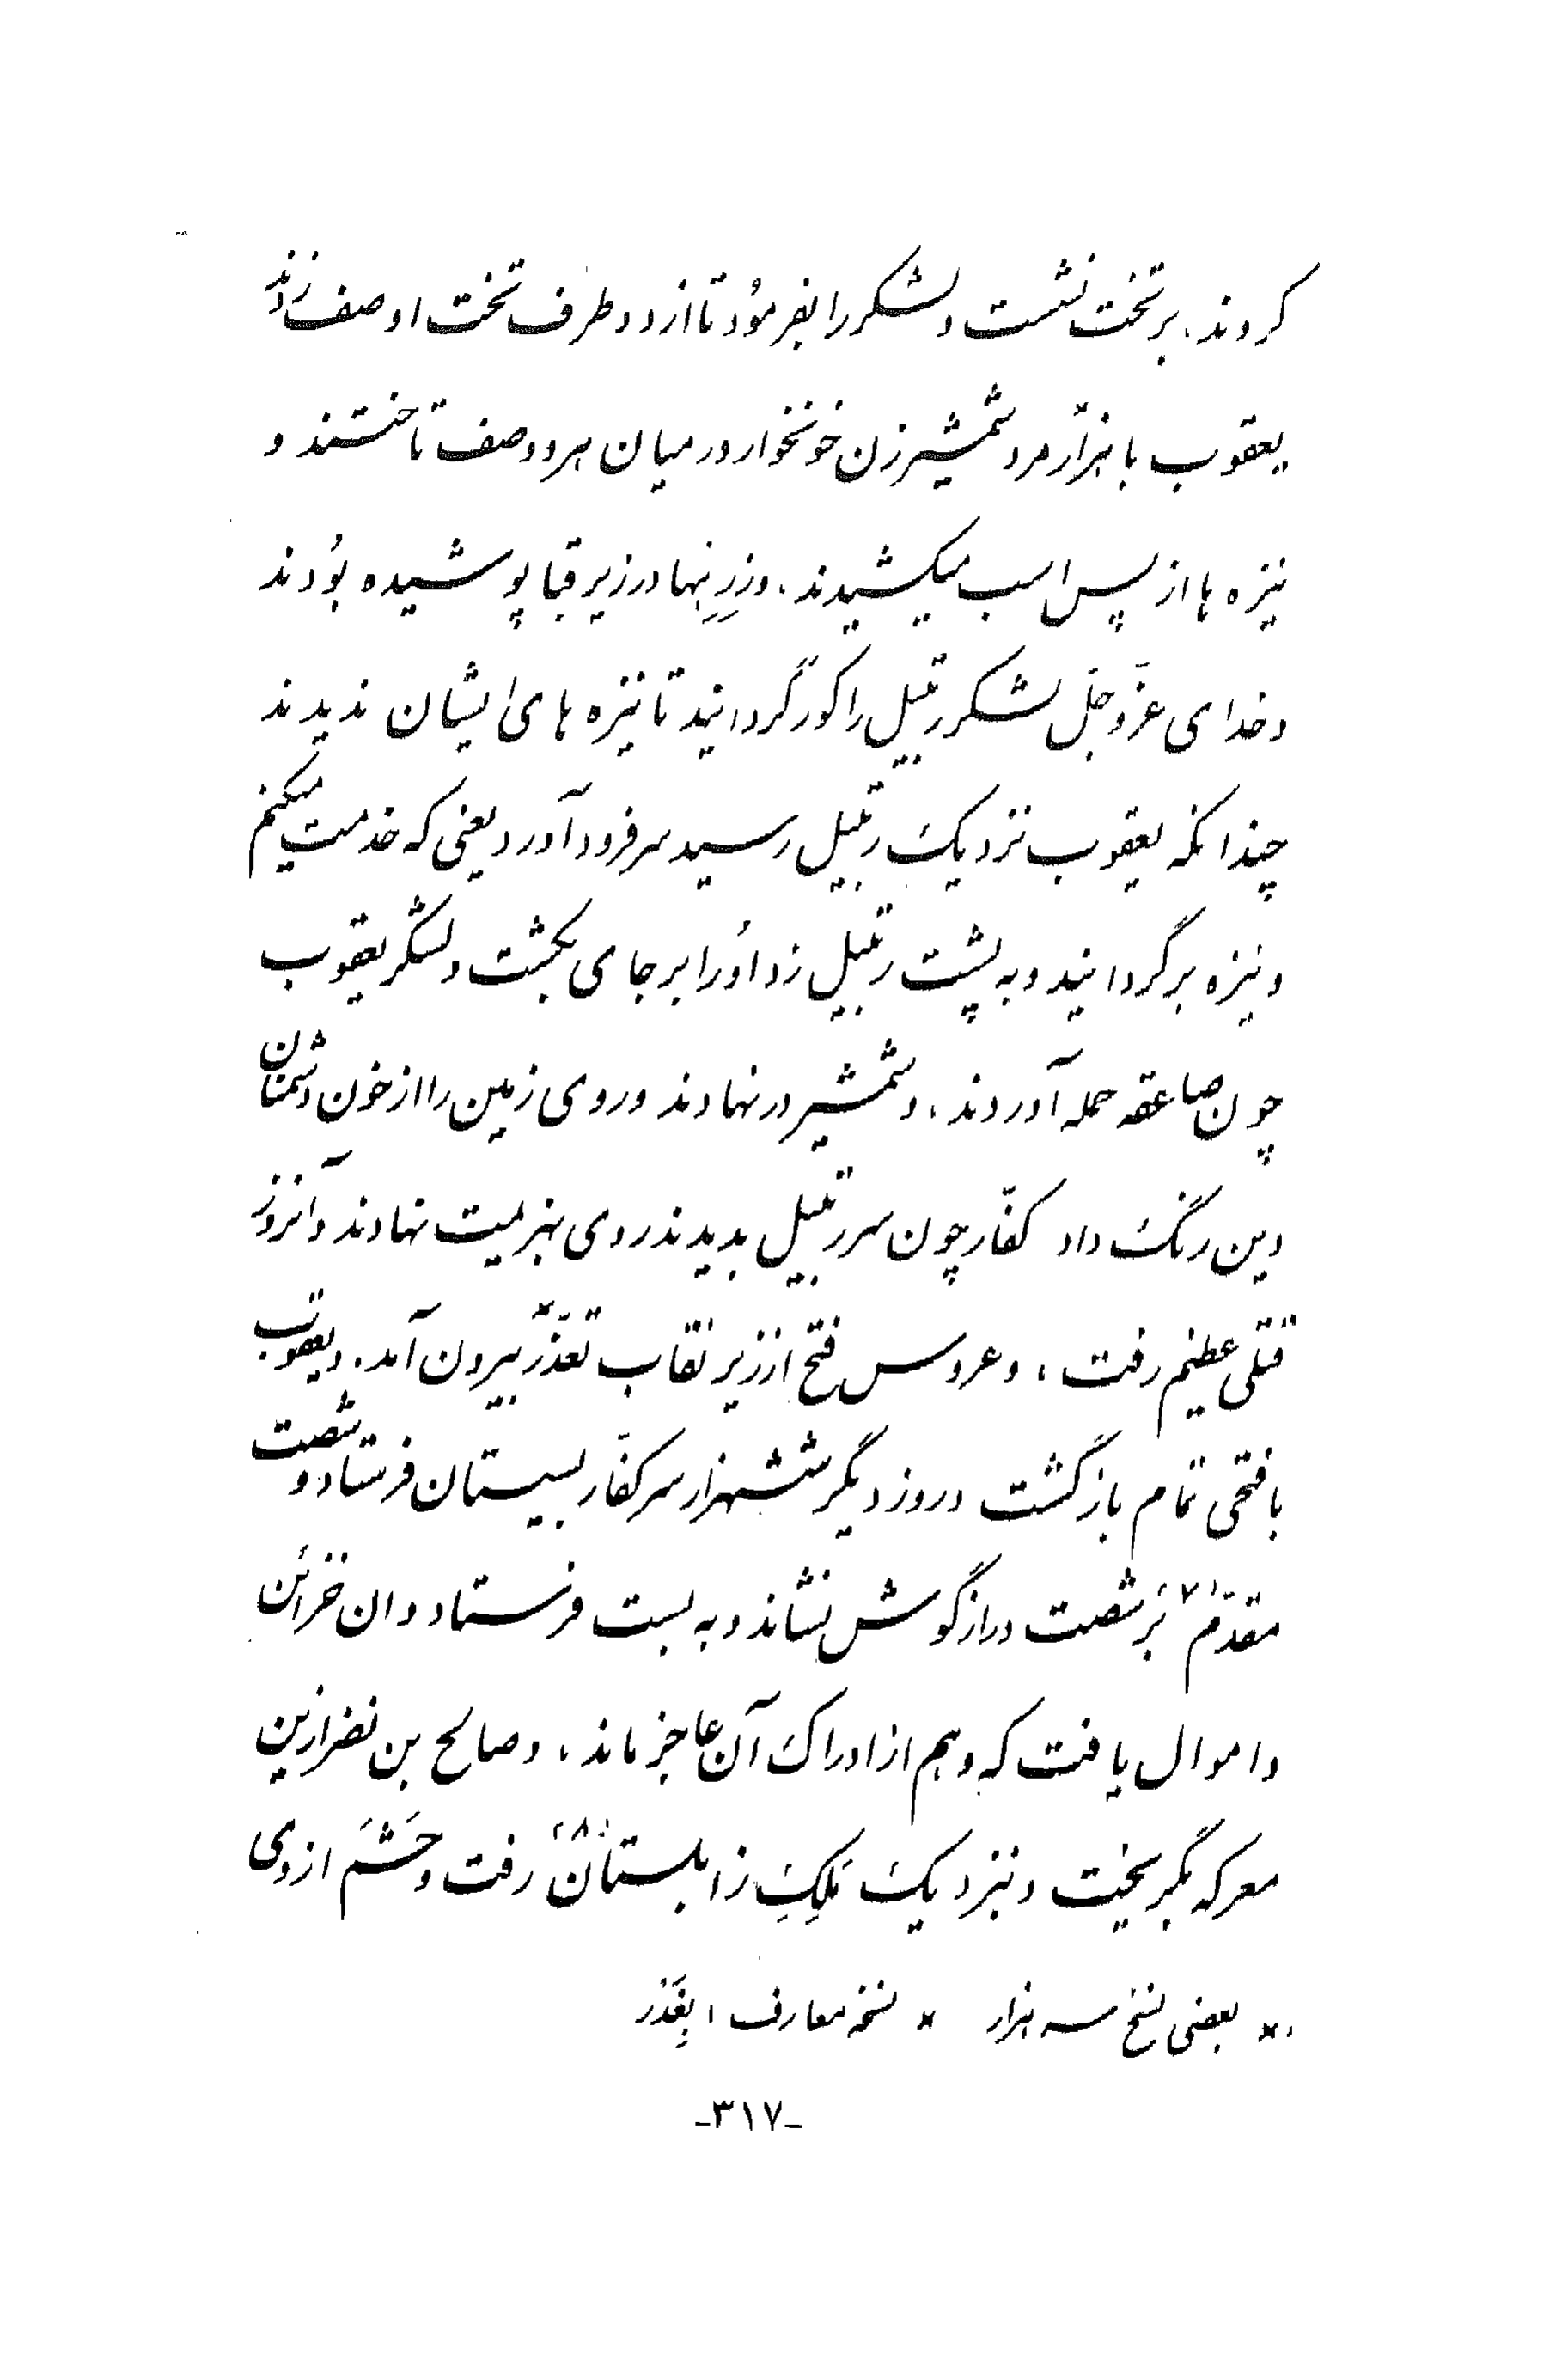 کردند. برتخت نشست ولشکر را بفرمود تا از دو طرف تخت او صف زدند
یعقوب با هزار* مرد شمشیرزن خونخوار در میان هر دو صف تاختند و
نیزه ها از پس اسب میکشیدند. وزرِهها در زیر قبا پوشیده بُودند
وخدای عزَّوجلَّ لشکر رتبیل را کور گردانید تا نیزه های ایشان ندیدند
چندانکه یعقوب نزدیک رتبیل رسید سر فرود آورد یعنی که خدمت میکنم
ونیزه برگردانید وبه پشت رتبیل زد اوُرا بر جای بکشت ولشگر یعقوب
چون صاعقه حمله آوردند. وشمشیر در نهادند وروی زمین را از خون دشمنان
دین رنگ داد کفّار چون سر رتبیل بدیدند روی بهزیمت نهادند وآنروز
قتلی عظیم رفت، وعروس فتح از زیر نقاب تعذّر* بیرون آمد. ویعقوب
با فتحی تمام بازگشت وروز دیگر ششهزار سر کفّار بسیستان فرستاد و شصت
مقدّم «۷» بَر شصت درازگوش نشاند وبه بست فرستاد وان خزائن
واموال یافت که وهم از ادراک آن عاجز ماند، وصالح بن نضر ازین
معرکه بگریخت وبنزدیک مَلِکِ زابلستان «۸» رفت وحَشَم از وی
*. بعضی نسخ سه هزار * نسخه معارف: بِغَدَر
-۳۱۷-